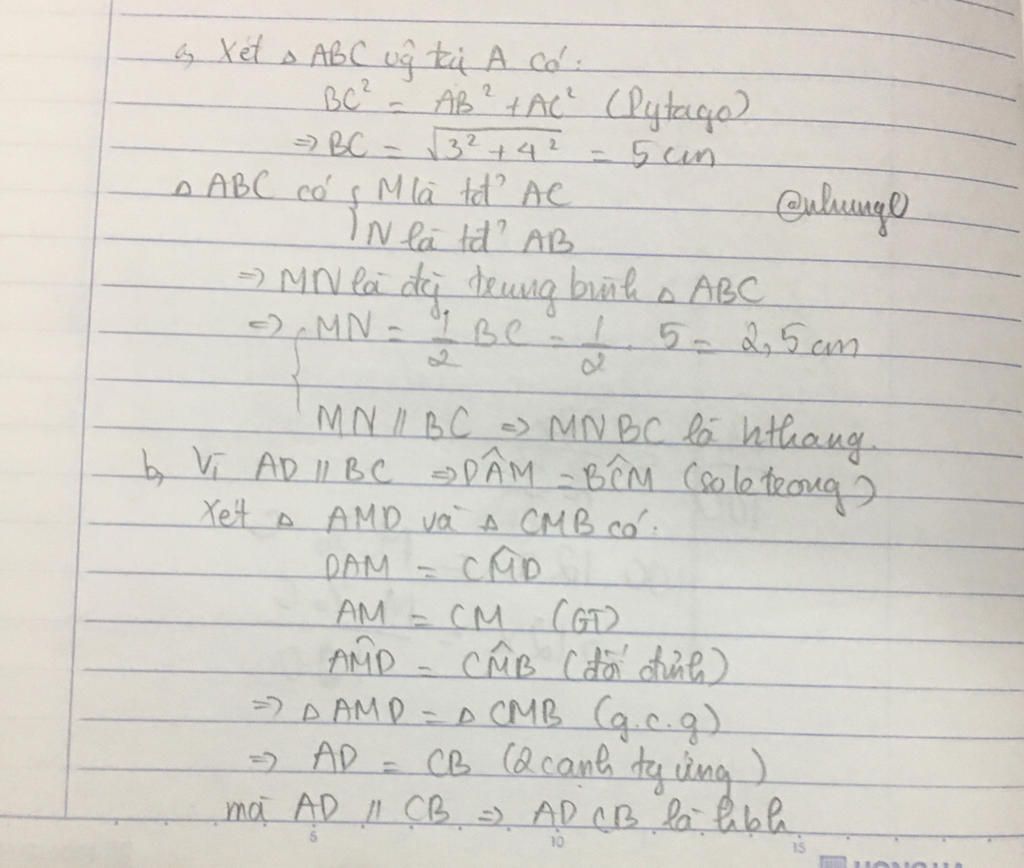 a, Xét △ ABC vg tại A có:
BC² = AB² + AC² (Pytago)
⇒ BC = √3² + 4² = 5 cm
△ ABC có { M là tđ² AC
@nhungl
N là tđ² AB
⇒ MN là đg trung bình △ ABC
⇒ { MN = 1/2 BC = 1/2 . 5 = 2,5 cm
MN // BC ⇒ MNBC là hthang.
b, Vì AD // BC ⇒ DÂM = BĈM (so le trong)
Xét △ AMD và △ CMB có:
DAM = CM̂D
AM = CM (GT)
AM̂D = CM̂B (đối đỉnh)
⇒ △ AMD = △ CMB (g.c.g)
⇒ AD = CB (2 cạnh tg ứng)
mà AD // CB ⇒ ADCB là hbh
5 10 15